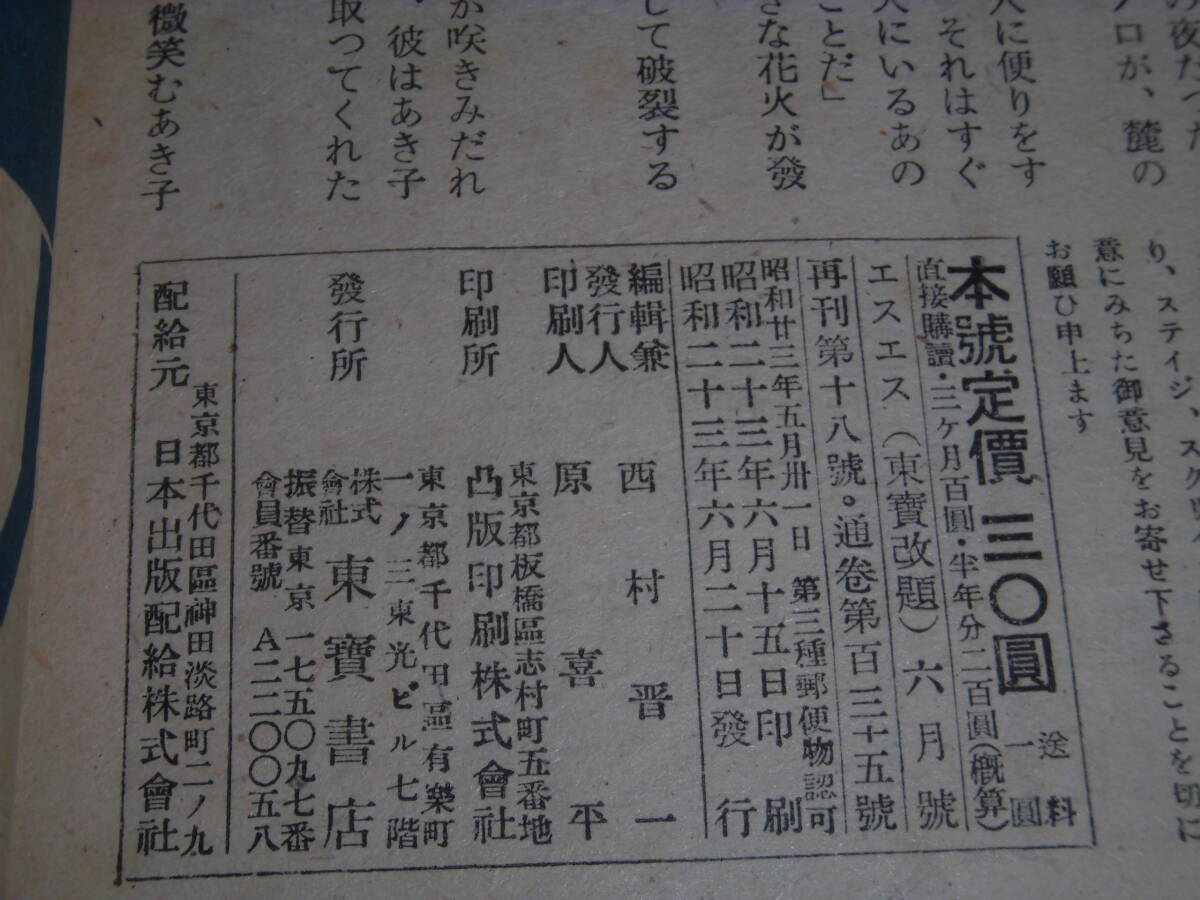 の夜だつた
ノロが、麓の
人に便りをす
それはすぐ
人にいるあの
ことだ」
きな花火が發
して破裂する
が咲きみだれ
、彼はあき子
取つてくれた
微笑むあき子
り、ステイジ、スクリ
意にみちた御意見をお寄せ下さることを切に
お願ひ申上ます
本號定價 三〇圓 送料一圓
直接購讀・三ケ月百圓・半年分二百圓(概算)
エスエス(東寶改題)六月號
再刊第十八號。通卷第百三十五號
昭和廿三年五月卅一日 第三種郵便物認可
昭和二十三年六月十五日印刷
昭和二十三年六月二十日發行
編輯兼
發行人 西村晋一
印刷人 原喜平
東京都板橋區志村町五番地
印刷所 凸版印刷株式會社
東京都千代田區有樂町
一ノ三東光ビル七階
發行所 株式會社 東寶書店
振替東京一七五〇九七番
會員番號 A二二〇〇五八
東京都千代田區神田淡路町二ノ九
配給元 日本出版配給株式會社